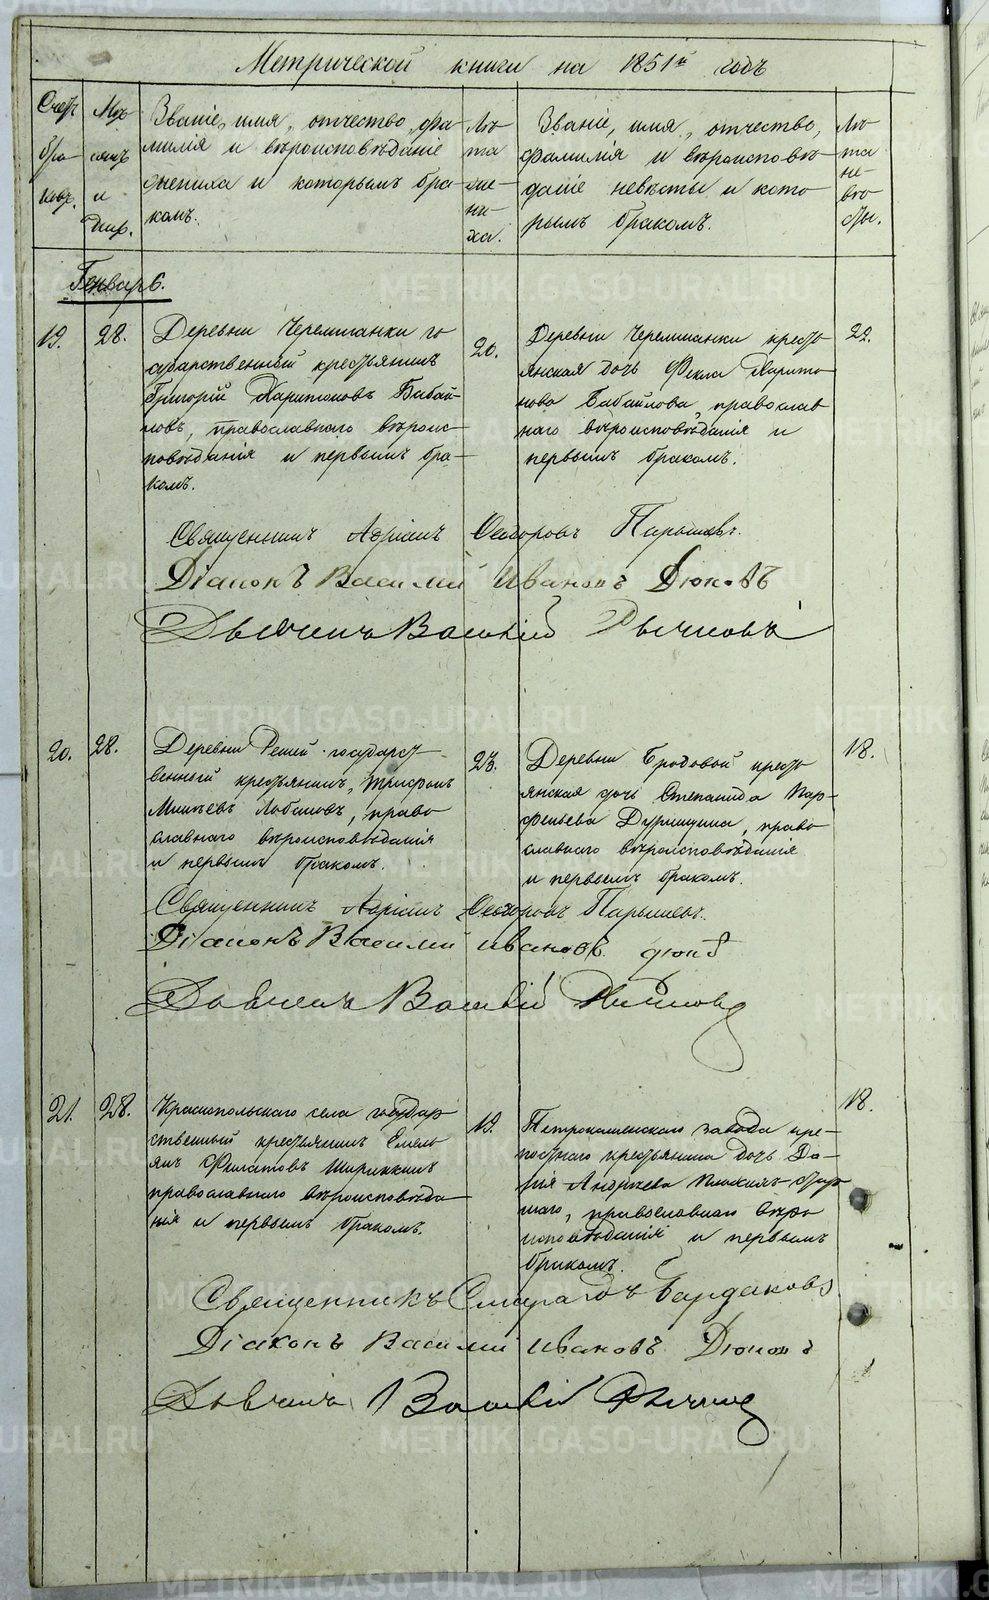 Метрической книги на 1851й годъ
Счетъ браковъ.
Мѣсяцъ и день.
Званіе, имя, отчество, фа-
милія и вѣроисповѣданіе
жениха и которымъ бра-
комъ.
Лѣ-
та
же-
ни-
ха.
Званіе, имя, отчество,
фамилія и вѣроисповѣ-
даніе невѣсты и кото-
рымъ бракомъ.
Лѣ-
та
не-
вѣ-
сты.
Генварь.
19. 28.
Деревни Черемшанки го-
сударственный крестьянинъ
Григорій Харитоновъ Бабай-
ловъ, православнаго вѣроис-
повѣданія и первымъ бра-
комъ.
20.
Деревни Черемшанки кресть-
янская дочь Фекла Харито-
нова Бабайлова, православ-
наго вѣроисповѣданія и
первымъ бракомъ.
22.
Священникъ Адріанъ Ѳеодоровъ Парышевъ.
Діаконъ Василий Ивановъ Дюковъ
Дьячекъ Василій Рычковъ
20. 28.
Деревни Решей государст-
венный крестьянинъ, Трифонъ
Лобановъ, право-
славнаго вѣроисповѣданія
и первымъ бракомъ.
23.
Деревни Бродовой кресть-
янская дочь Степанида Пар-
феньева, право-
славнаго вѣроисповѣданія
и первымъ бракомъ.
18.
Священникъ Адріанъ Ѳеодоровъ Парышевъ.
Діаконъ Василий Ивановъ Дюковъ
Дьячекъ Василій Рычковъ
21. 28.
Краснопольскаго села государ-
ственный крестьянинъ Емель-
янъ Филатовъ Ширинкинъ
православнаго вѣроисповѣда-
нія и первымъ бракомъ.
19.
Петрокаменскаго завода кре-
постнаго крестьянина дочь Да-
рья Андреева
православнаго вѣро-
исповѣданія и первымъ
бракомъ.
18.
Священникъ Бардаковъ
Діаконъ Василий Ивановъ Дюковъ
Дьячекъ Василій Рычковъ
METRIKI.GASO-URAL.RU